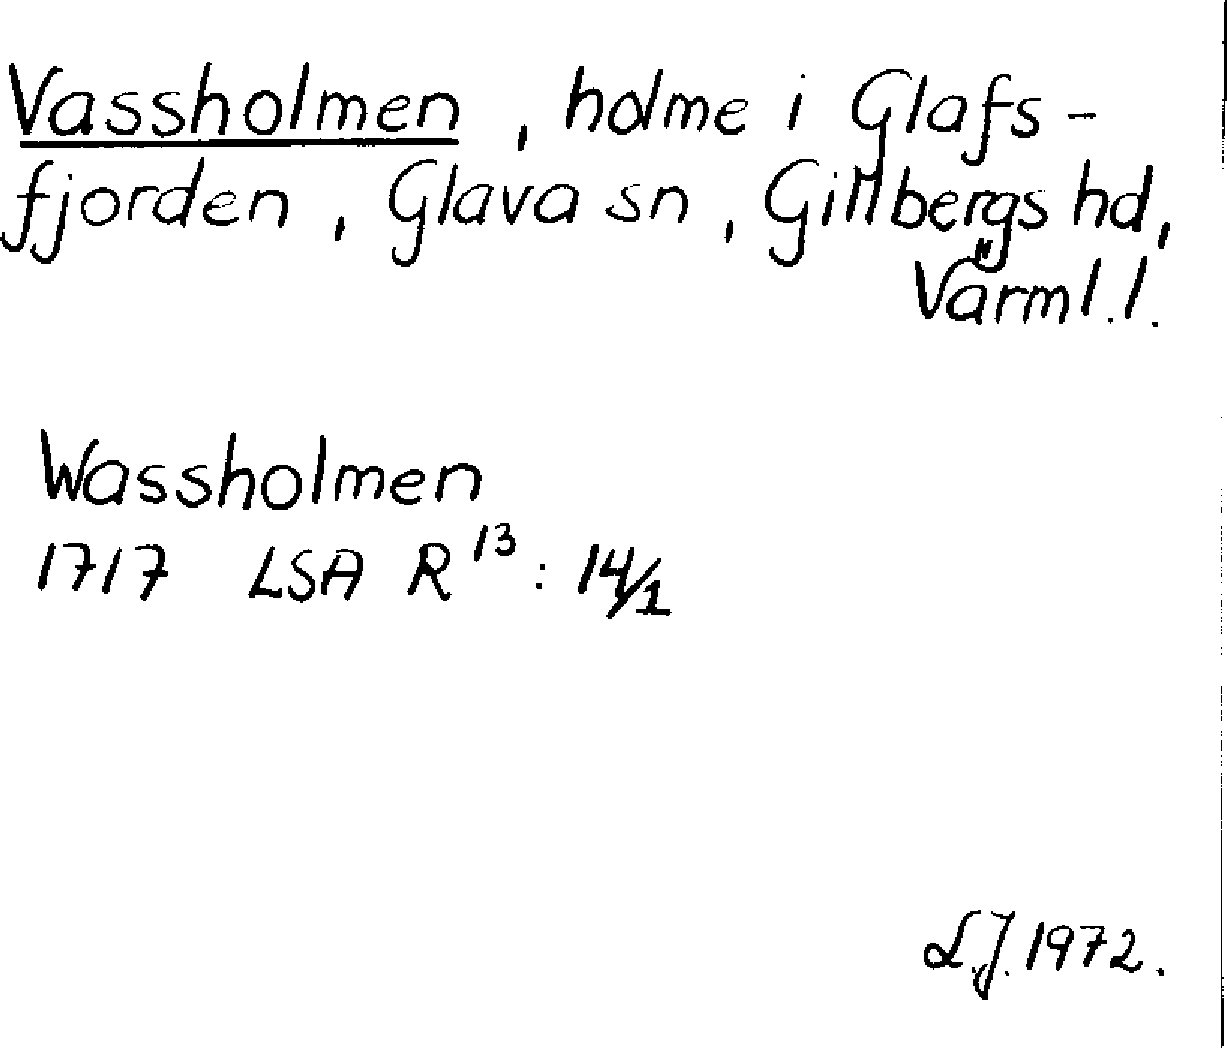 Vassholmen, holme i Glafs-
fjorden, Glava sn, Gillbergs hd,
Värml.l.
Wassholmen
1717 LSA R¹³: 14/1
L.J. 1972.